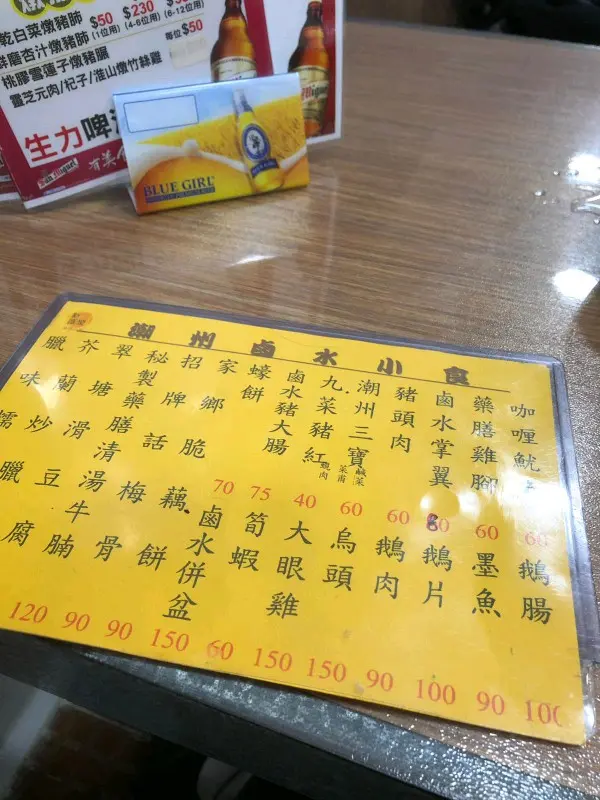 乾白菜燉豬肺 $50 $230
(1位用) (4-6位用) (6-12位用)
杏汁燉豬肺
桃膠雪蓮子燉豬𦟌
靈芝元肉/杞子/淮山燉竹絲雞
每位 $50
生力啤
San Miguel
BLUE GIRL
潮州鹵水小食
咖喱魷 60
藥膳雞腳 60
鹵水掌翼
豬頭肉 60
潮州三寶 鹹菜 菜甫 60
九菜豬紅 40
鹵水豬大腸 75
蠔餅 70
鵝腸 100
墨魚 90
鵝片 100
鵝肉 90
烏頭 150
大眼雞 150
筍蝦 60
鹵水併盆 150
家鄉脆藕餅 90
招牌話梅骨 90
秘製藥膳清湯牛腩 120
翠塘滑豆腐
芥蘭炒臘
臘味糯